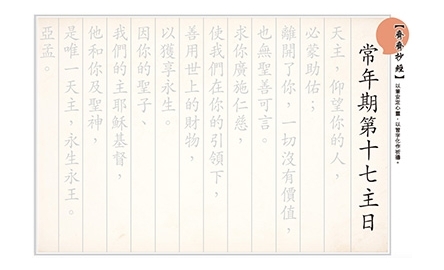 【齊齊抄經】
以筆安定心靈，以習字化作祈禱。
常年期第十七主日
天主，仰望你的人，
必蒙助佑；
離開了你，一切沒有價值，
也無聖善可言。
求你廣施仁慈，
使我們在你的引領下，
善用世上的財物，
以獲享永生。
因你的聖子、
我們的主耶穌基督，
他和你及聖神，
是唯一天主，永生永王。
亞孟。